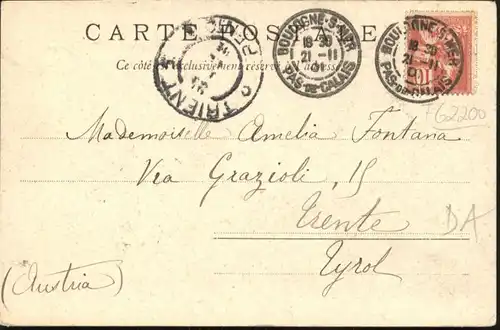 CARTE POSTALE
Ce côté est exclusivement réservé à l'adresse
TRIENT
BOULOGNE-S-MER
18 30
21 -11
01
PAS-DE-CALAIS
BOULOGNE-S-MER
18 30
21 -11
01
PAS-DE-CALAIS
10
F62200
Mademoiselle Amelia Fontana
Via Grazioli, 15
Trente
DA
Tyrol
(Austria)